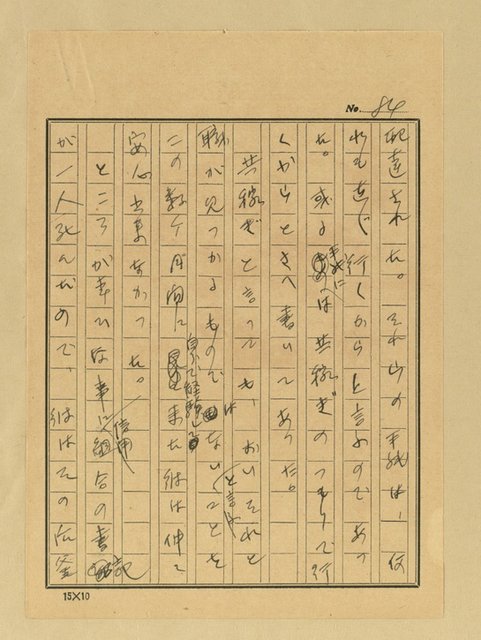 No. 84
配達された。それらの手紙は、何
れも直ぐ行くからと言ふのであつ
た。或る手紙には共稼ぎのつもりで行
くからとさへ書いてあつた。
共稼ぎと言つても、おいそれと
職が見つかるものではないと言ふことを
この数ヶ月間に自分で経験して来た彼は仲々
安心出来なかつた。
ところが幸ひな事に信用組合の書記
が一人死んだので、彼はその後釜
15×10